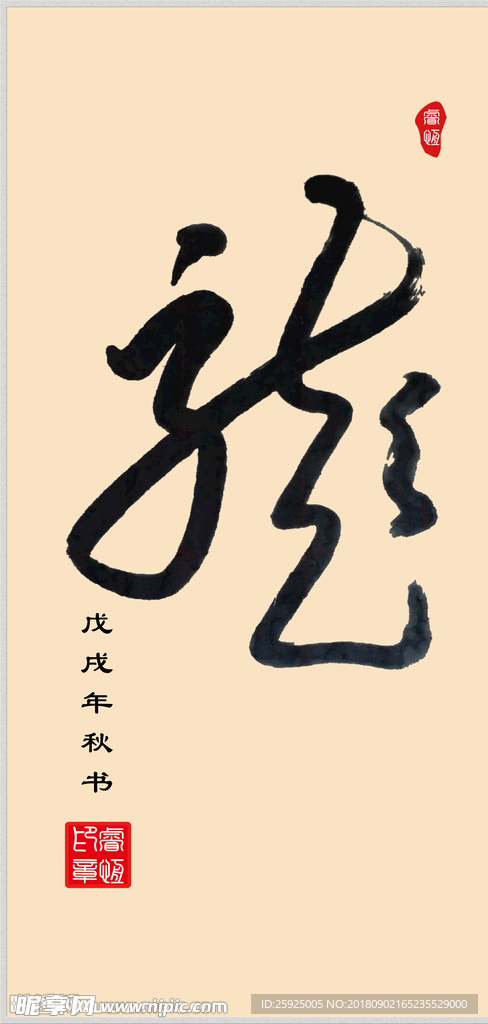 睿恆
龍
戊戌年秋书
睿恆印章
昵享网 www.nipic.com
ID:25925005 NO:20180902165235529000